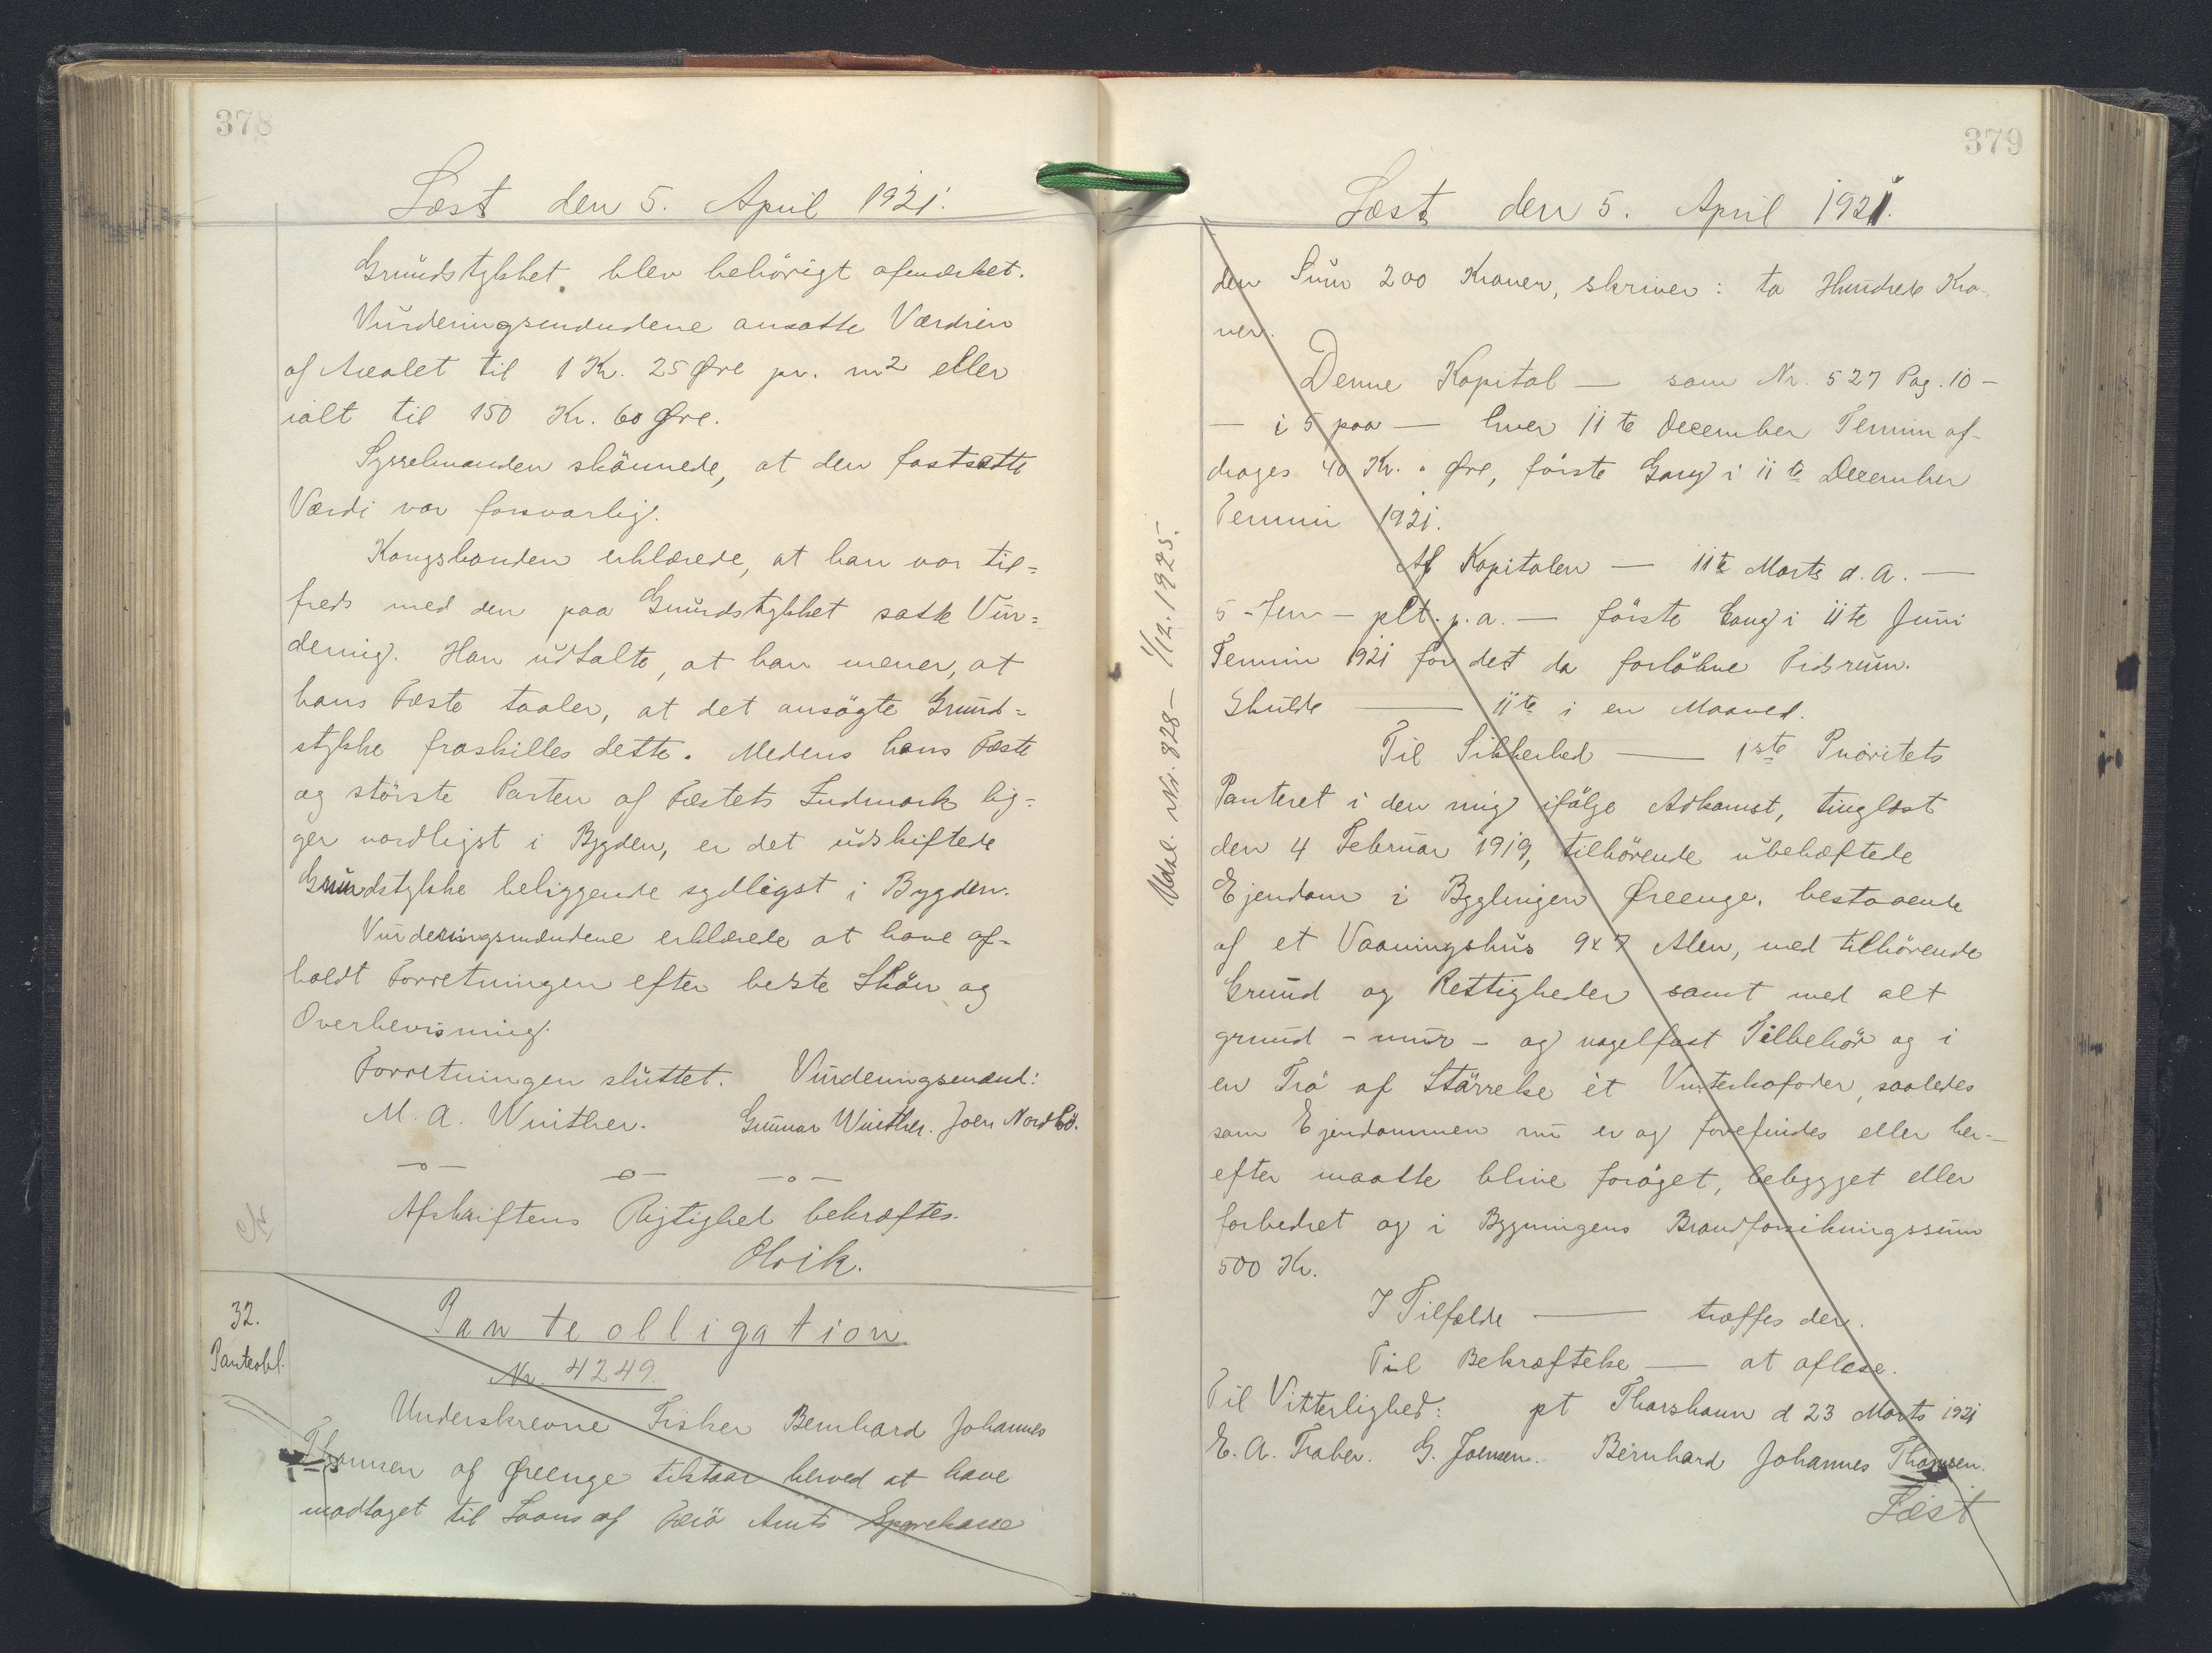 378
Læst den 5. April 1921.
Grundstykket blev behörigt afmærket.
Vurderingsmændene ansatte Værdien
af Arealet til 1 Kr. 25 Øre pr. m2 eller
ialt til 150 Kr. 60 Øre.
Sysselmanden skönnede, at den fastsatte
Værdi var forsvarlig.
Kongsbonden erklærede, at han var til=
freds med den paa Grundstykket satte Vur=
dering. Han udtalte, at han mener, at
hans Fæste taaler, at det ansögte Grund=
stykke fraskilles dette. Medens hans Fæste
og störste Parten af Fæstets Indmark lig=
ger nordligst i Bygden, er det udskiftede
Grundstykke beliggende sydligst i Bygden.
Vurderingsmændene erklærede at have af-
holdt Forretningen efter bedste Skön og
Overbevisning.
Forretningen sluttet. Vurderingsmænd:
M. A. Winther. Gunnar Winther. Joen Nordbö.
—o— —o— —o—
Afskriftens Rigtighed bekræftes.
Olrik.
32.
Panteobl.
Panteobligation
Nr. 4249.
Underskrevne Fisker Bernhard Johannes
Thomsen af Øreenge tilstaar herved at have
modtaget til Laans af Færö Amts Sparekasse
379
Læst den 5. April 1921.
den Sum 200 Kroner, skriver: to Hundrede Kro-
ner.
Denne Kapital — som Nr. 527 Pag. 10 —
— i 5 paa — hver 11te December Termin af-
drages 40 Kr. " Øre, förste Gang i 11te December
Termin 1921.
Af Kapitalen — 11te Marts d. A. —
5 - fem - pCt. p. a. — förste Gang i 11te Juni
Termin 1921 for det da forlöbne Tidsrum.
Skulde — 11te i en Maaned.
Til Sikkerhed — 1ste Prioritets
Panteret i den mig ifölge Adkomst, tinglæst
den 4 Februar 1919, tilhörende ubehæftede
Ejendom i Bygdingen Øreenge, bestaaende
af et Vaaningshus 9x7 Alen, med tilhörende
Grund og Rettigheder samt med alt
grund - mur - og nagelfast Tilbehör og i
en Trö af Störrelse et Vinterkofoder, saaledes
som Ejendommen nu er og forefindes eller her-
efter maatte blive foröget, bebygget eller
forbedret og i Bygningens Brandforsikringssum
500 Kr.
I Tilfælde — træffes der.
Til Bekræftelse — at aflæse.
Til Vitterlighed: pt Thorshavn d 23 Marts 1921
E. A. Traber. G. Joensen. Bernhard Johannes Thomsen.
Læst
Udsl. Nr. 828 — 1/12. 1925.